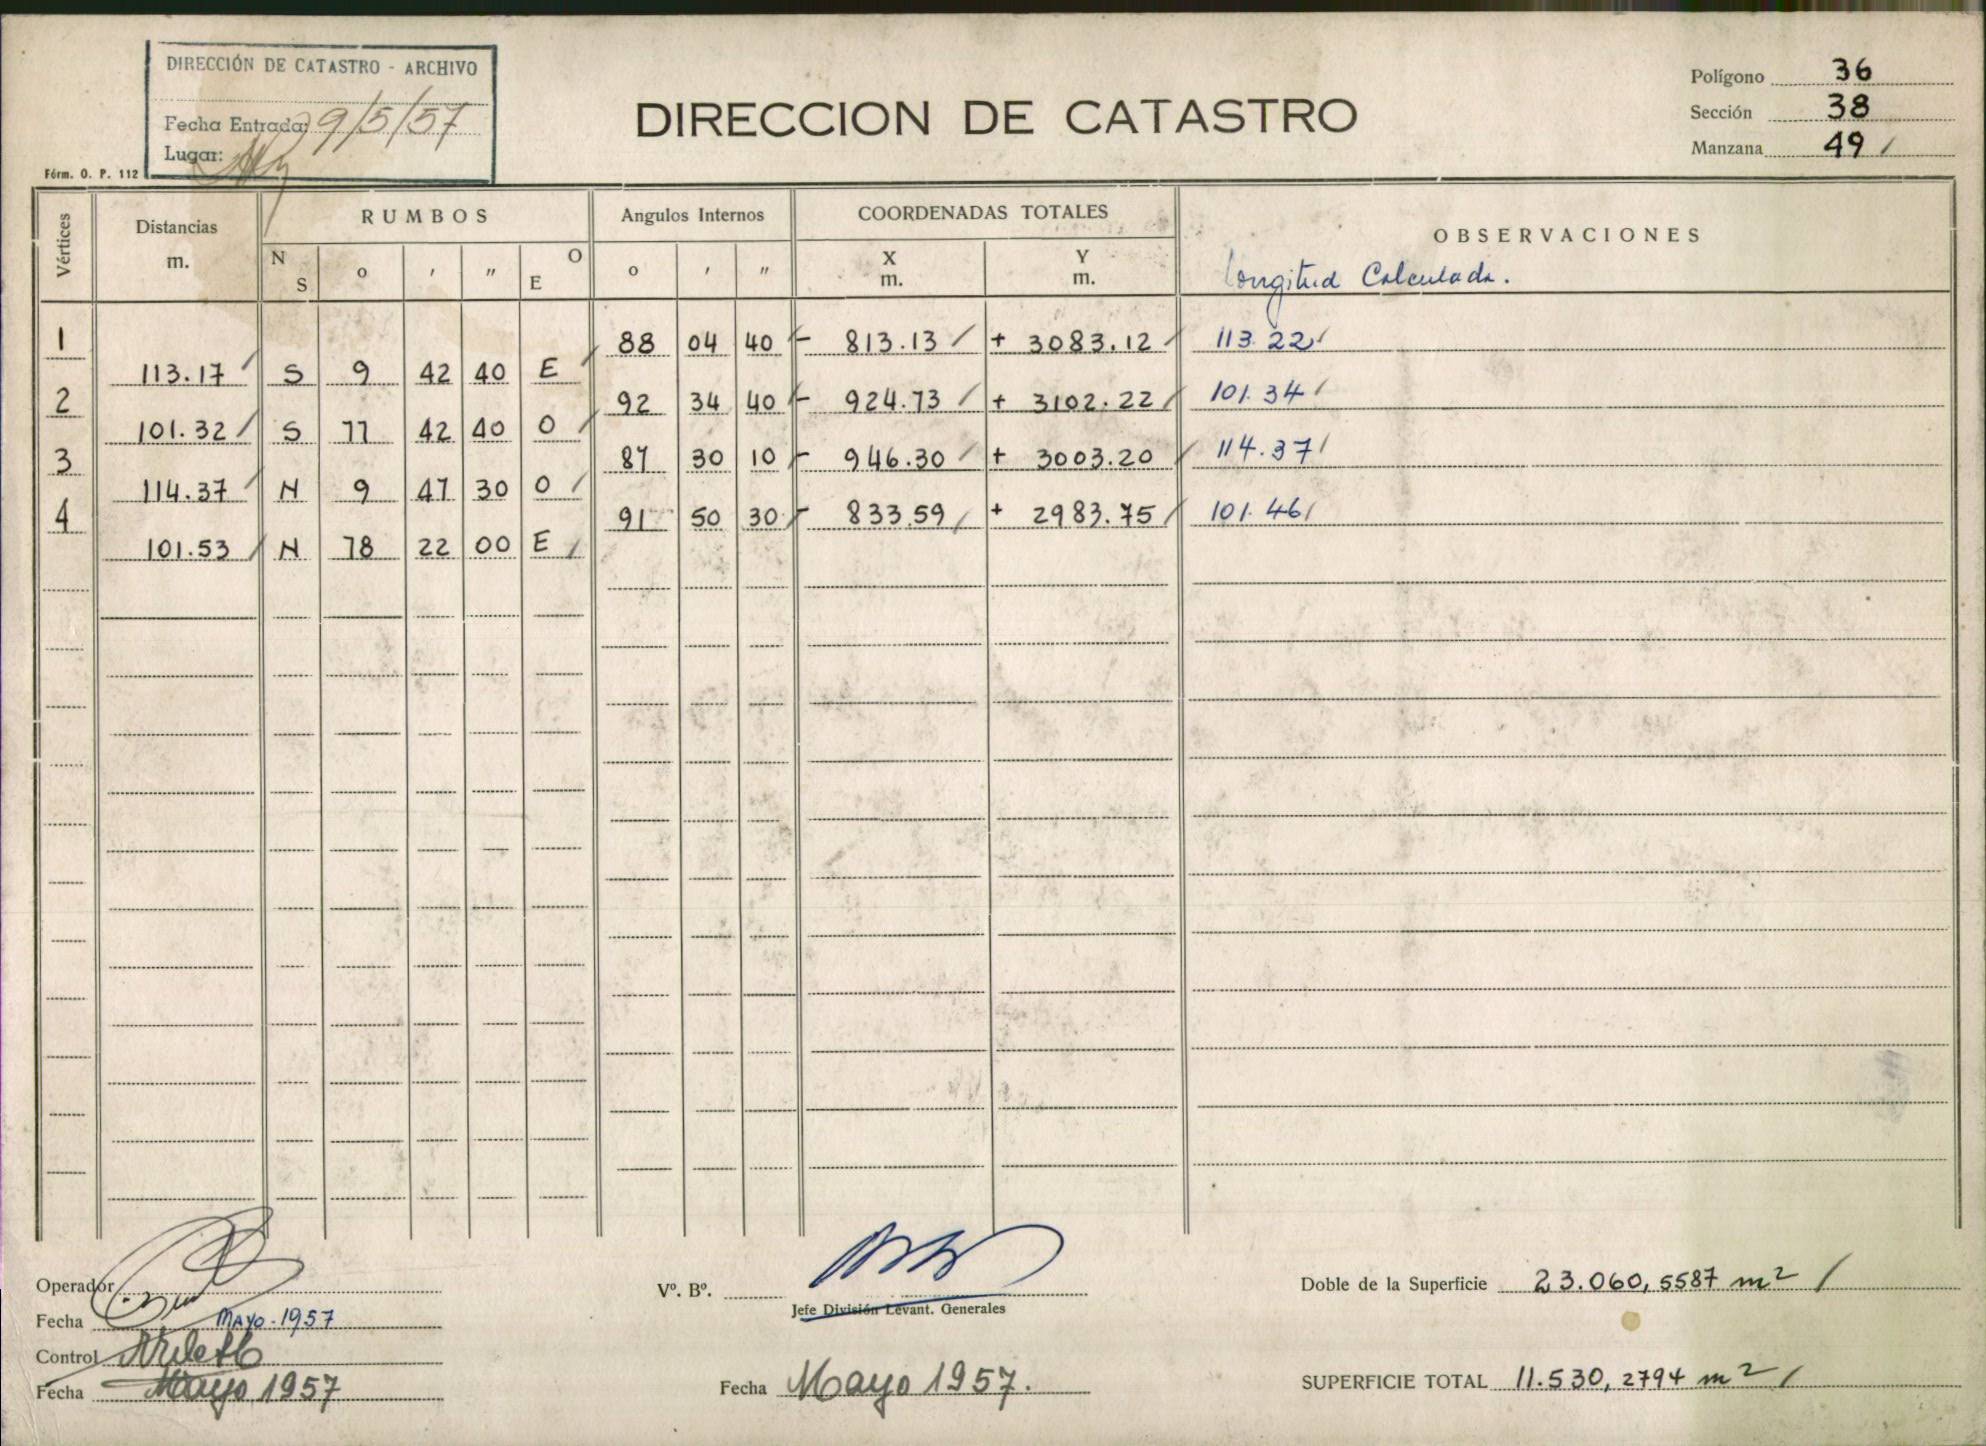 DIRECCIÓN DE CATASTRO - ARCHIVO
Fecha Entrada: 9/5/57
Lugar:
Fórm. O. P. 112
DIRECCION DE CATASTRO
Polígono 36
Sección 38
Manzana 49 /
Vértices Distancias m. RUMBOS N S o ' " O E Angulos Internos o ' " COORDENADAS TOTALES X m. Y m. OBSERVACIONES
Longitud Calculada.
1 88 04 40 - 813.13 / + 3083.12 / 113.22 /
113.17 / S 9 42 40 E /
2 92 34 40 - 924.73 / + 3102.22 / 101.34 /
101.32 / S 77 42 40 O /
3 87 30 10 - 946.30 / + 3003.20 / 114.37 /
114.37 / N 9 47 30 O /
4 91 50 30 - 833.59 / + 2983.75 / 101.46 /
101.53 / N 78 22 00 E /
Operador
Fecha MAYO-1957
Control
Fecha Mayo 1957
Vº. Bº.
Jefe División Levant. Generales
Fecha Mayo 1957.
Doble de la Superficie 23.060,5587 m² /
SUPERFICIE TOTAL 11.530,2794 m² /